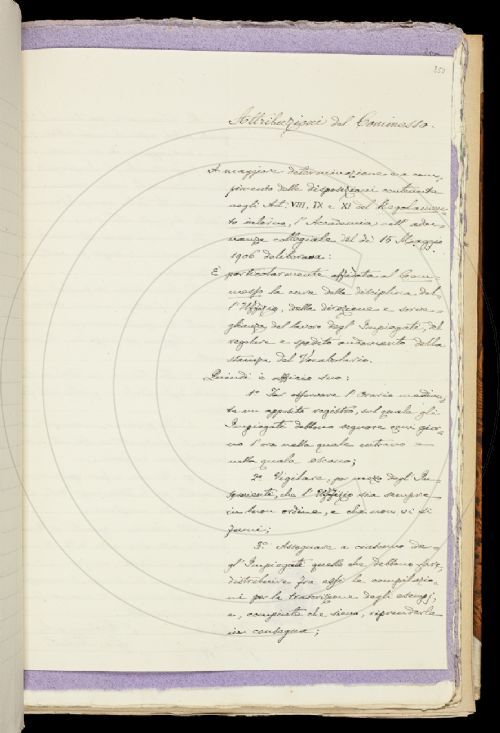 250
Attribuzioni del Commesso.
A maggiore determinazione e a com-
pimento delle disposizioni contenute
negli Art. VIII, IX e XI del Regolamen-
to interno, l'Accademia nell'adu-
nanza collegiale del dì 15 Maggio
1906 deliberava:
È particolarmente affidata al Com-
messo la cura della disciplina del-
l'Uffizio, della direzione e sorve-
glianza del lavoro degl'Impiegati, del
regolare e spedito andamento della
stampa del Vocabolario.
Quindi è officio suo:
1° Far osservare l'orario median-
te un apposito registro, sul quale gli
Impiegati debbano segnare ogni gior-
no l'ora nella quale entrano e
nella quale escono;
2° Vigilare, per mezzo degli In-
servienti, che l'Uffizio sia sempre
in buon ordine, e che non vi si
fumi;
3° Assegnare a ciascuno de-
gl'Impiegati quello che debbono fare,
distribuire fra essi le compilazio-
ni per la trascrizione degli esempj,
e, compiute che sieno, riprenderle
in consegna;